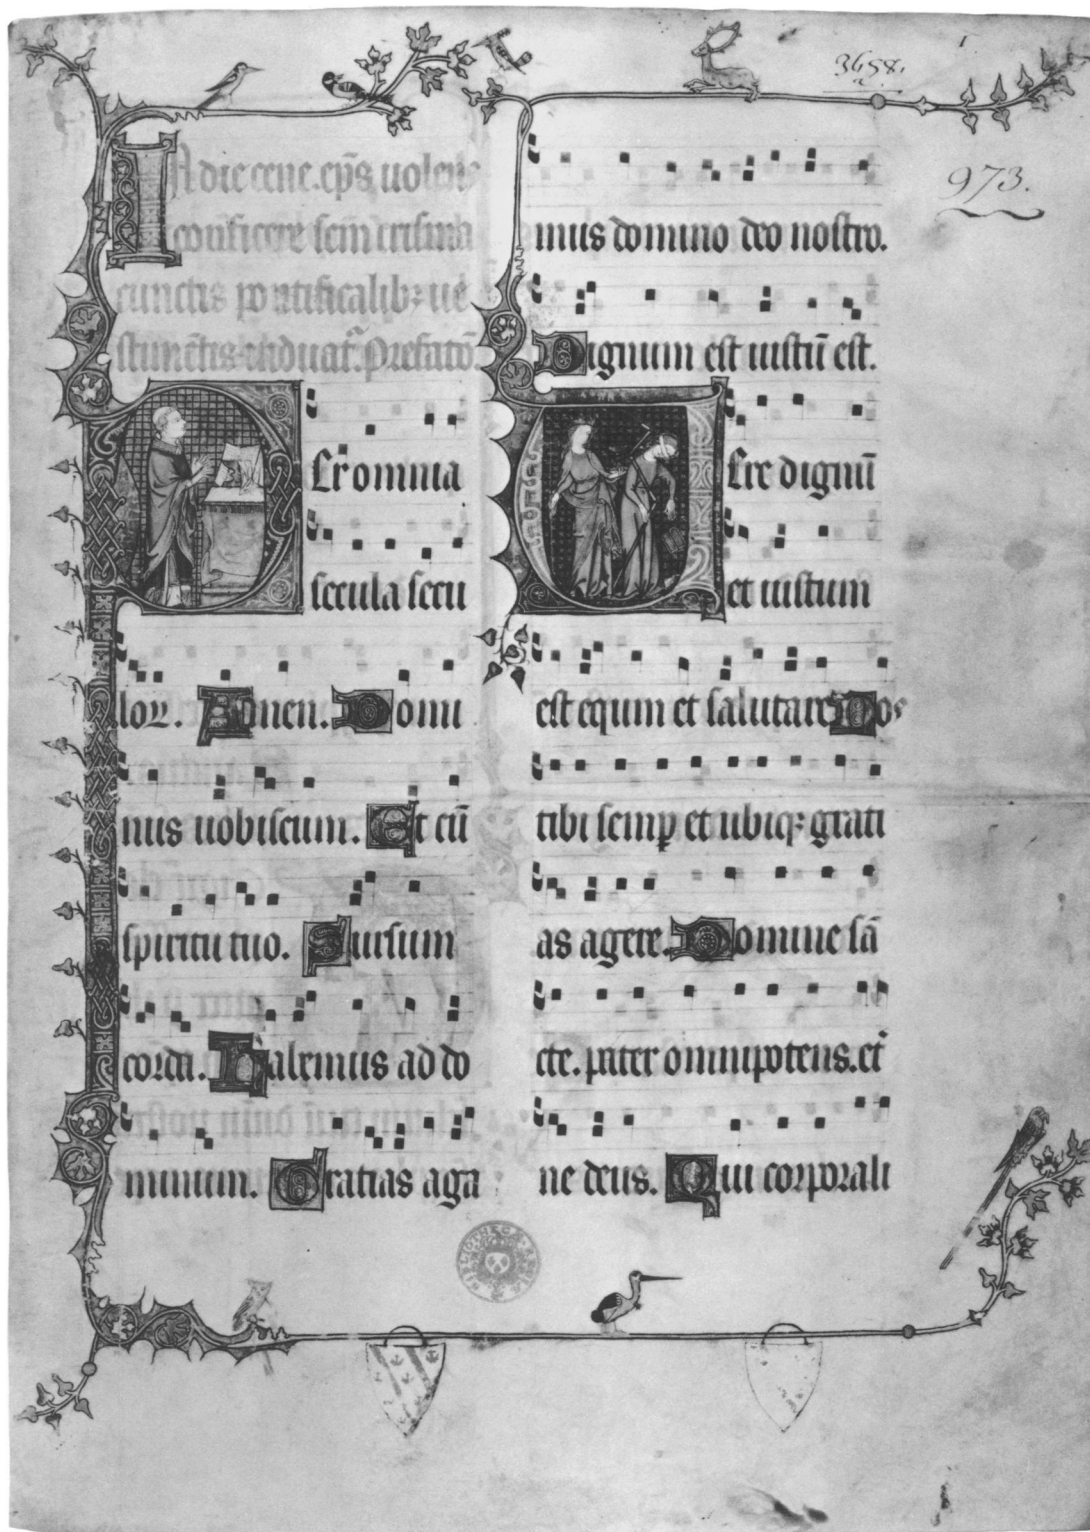 3658.
1
973.
In die cene. ep̄s uolens
conficere sc̄m crisma
cunctis pontificalib; ue
stimētis induat᷑. Prefatō.
Per omnia
secula secu
loꝝ. Amen. Domi
nus uobiscum. Et cū
spiritu tuo. Sursum
corda. Habemus ad do
minum. Gratias aga
mus domino deo nostro.
Dignum est iustū est.
Uere dignū
et iustum
est equm et salutare Nos
tibi semꝑ et ubiqꝫ grati
as agere. Domine sā
cte. pater omnipotens. et᷑
ne deus. Qui corporali